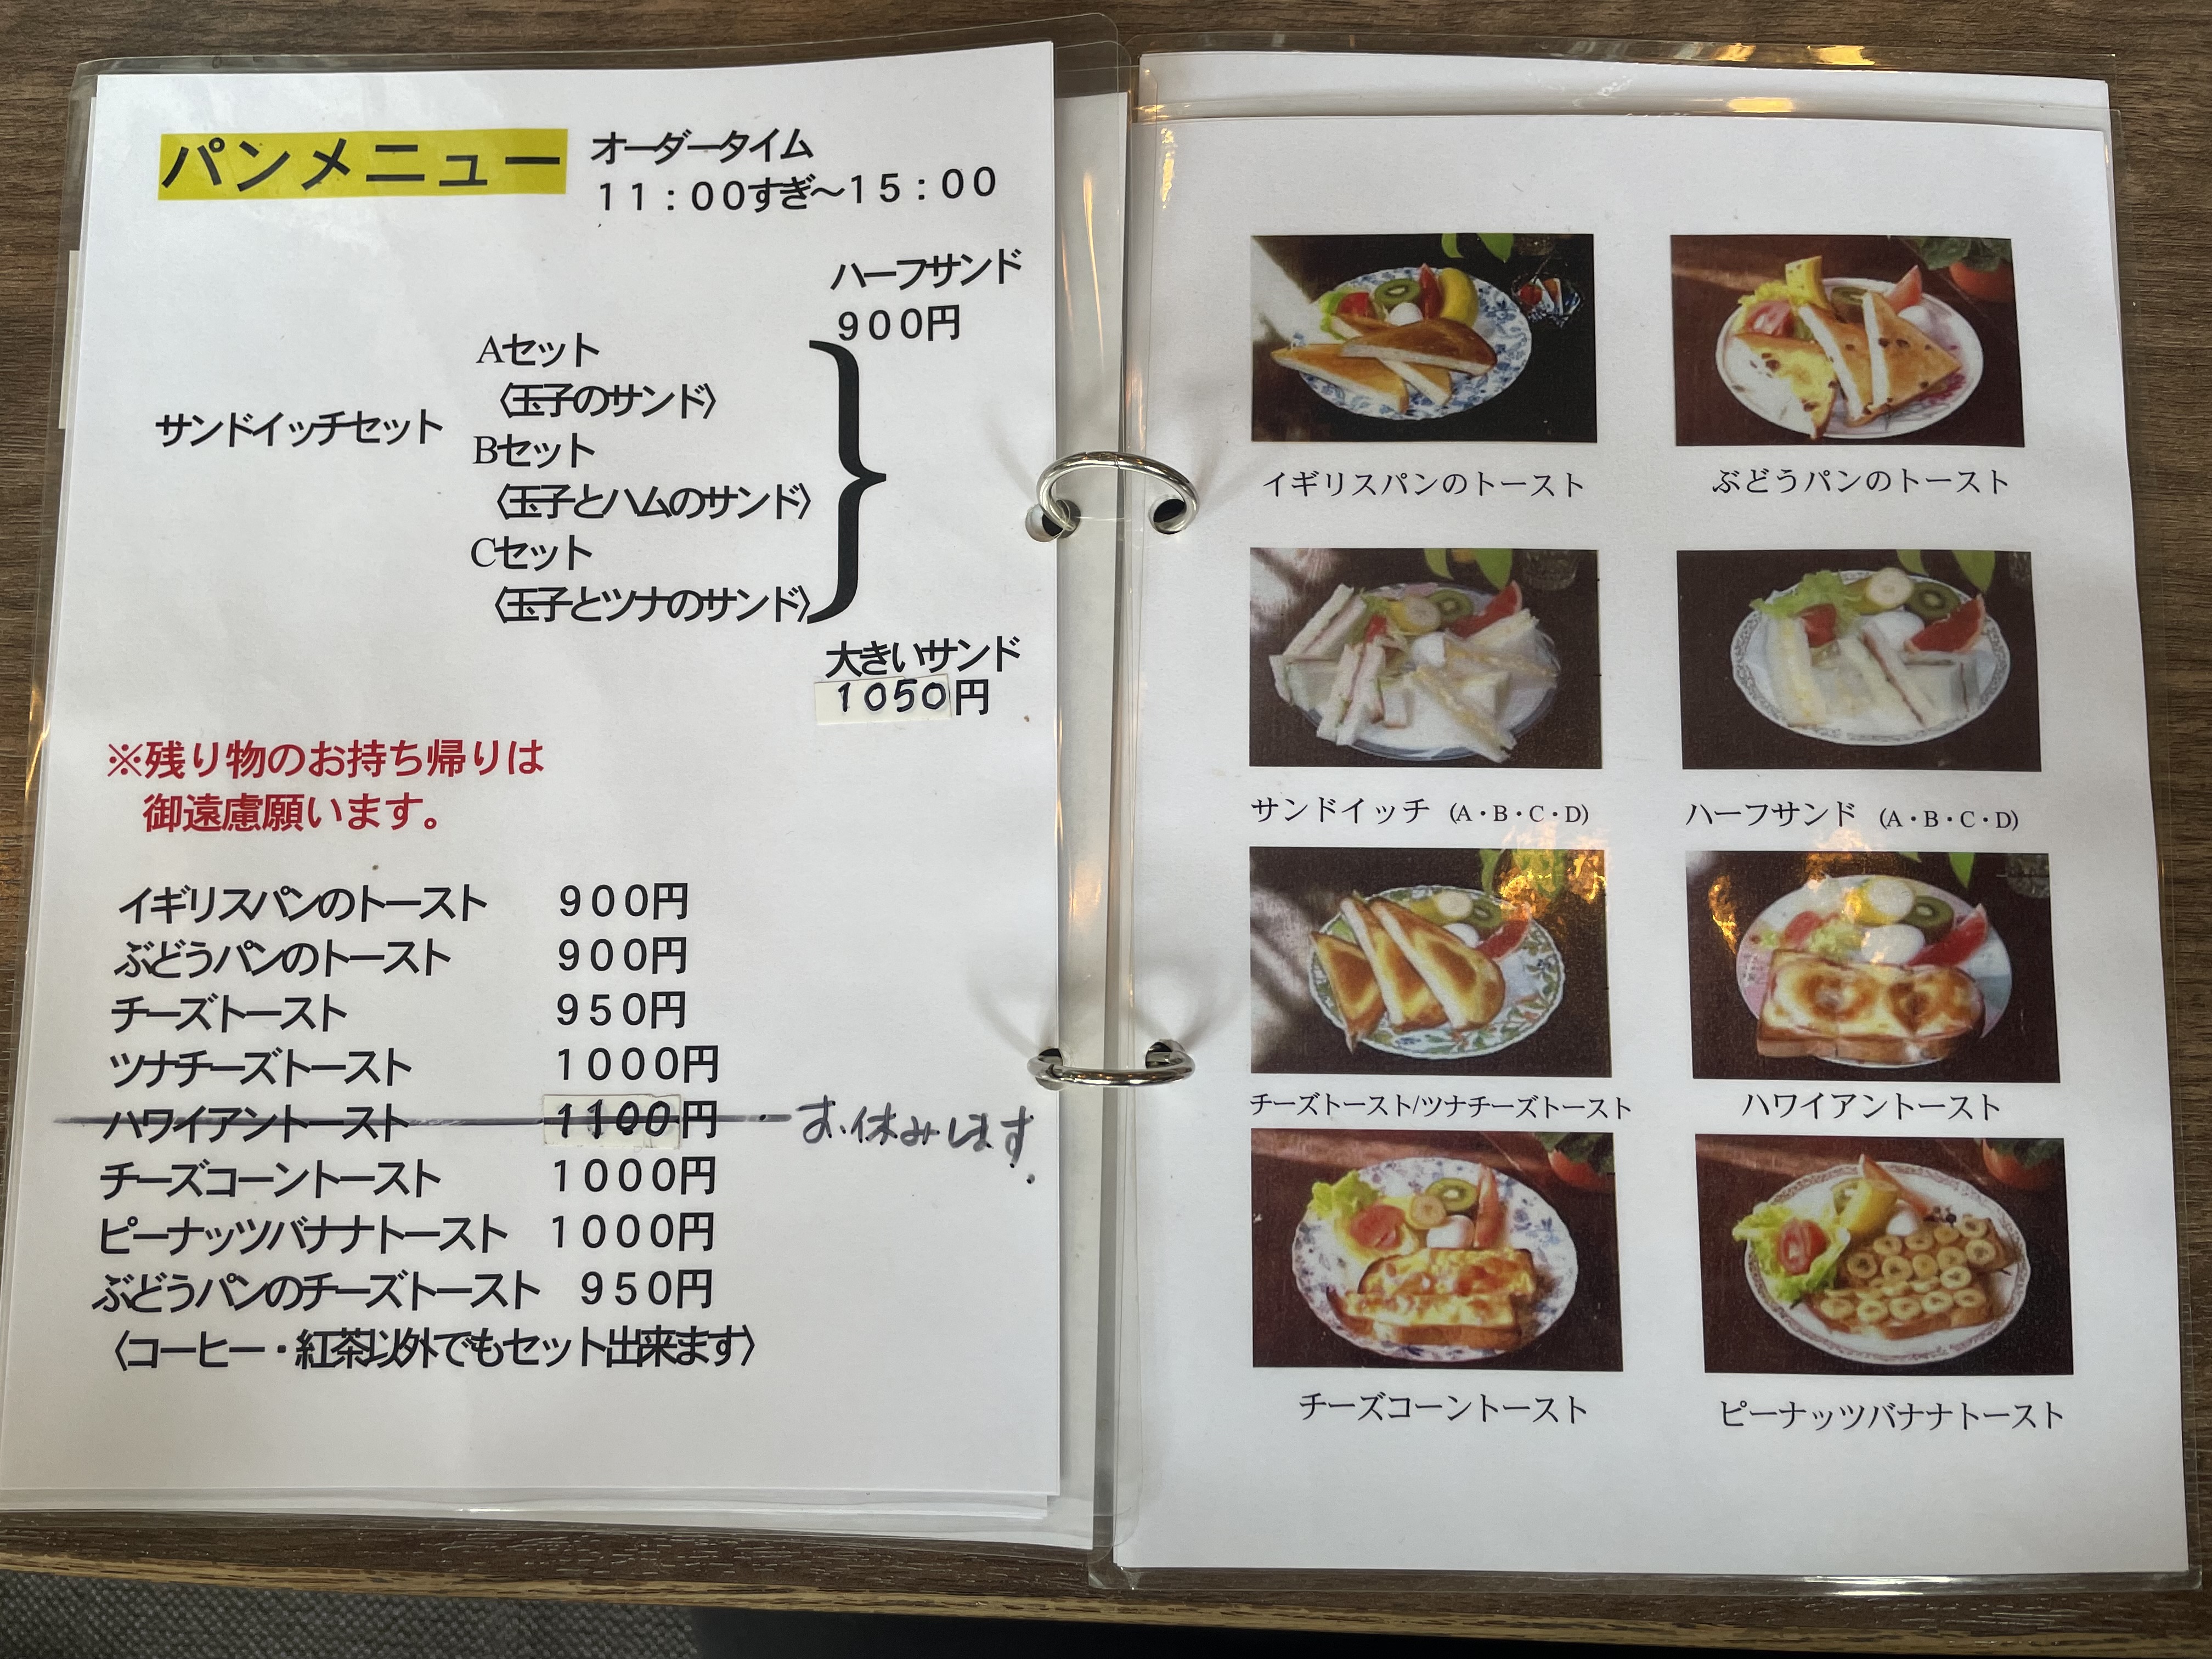 パンメニュー
オーダータイム
11:00すぎ～15:00
ハーフサンド
900円
サンドイッチセット
Aセット
〈玉子のサンド〉
Bセット
〈玉子とハムのサンド〉
Cセット
〈玉子とツナのサンド〉
大きいサンド
1050円
※残り物のお持ち帰りは
御遠慮願います。
イギリスパンのトースト 900円
ぶどうパンのトースト 900円
チーズトースト 950円
ツナチーズトースト 1000円
ハワイアントースト 1100円 お休みします
チーズコーントースト 1000円
ピーナッツバナナトースト 1000円
ぶどうパンのチーズトースト 950円
〈コーヒー・紅茶以外でもセット出来ます〉
イギリスパンのトースト
ぶどうパンのトースト
サンドイッチ (A・B・C・D)
ハーフサンド (A・B・C・D)
チーズトースト/ツナチーズトースト
ハワイアントースト
チーズコーントースト
ピーナッツバナナトースト